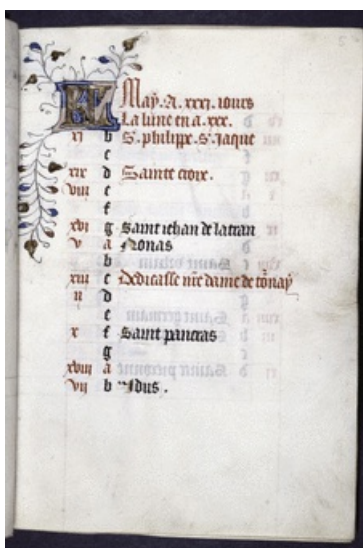 KL May. A. xxxi. iours
La lune en a. xxx.
xi b S. philippe. s. iaque
c
xix d Sainte croix.
viii e
f
xvi g Saint iehan de latran
v a Nonas
b
xiii c Dedicasse nre dame de tonay
ii d
e
x f Saint pancras
g
xviii a
vii b Idus.